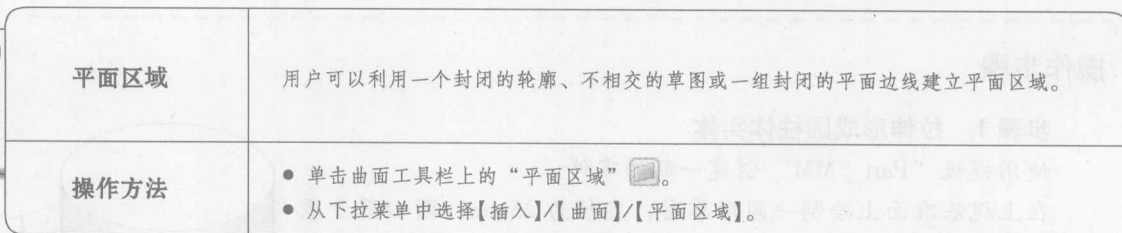 平面区域
用户可以利用一个封闭的轮廓、不相交的草图或一组封闭的平面边线建立平面区域。
操作方法
● 单击曲面工具栏上的“平面区域”。
● 从下拉菜单中选择【插入】/【曲面】/【平面区域】。